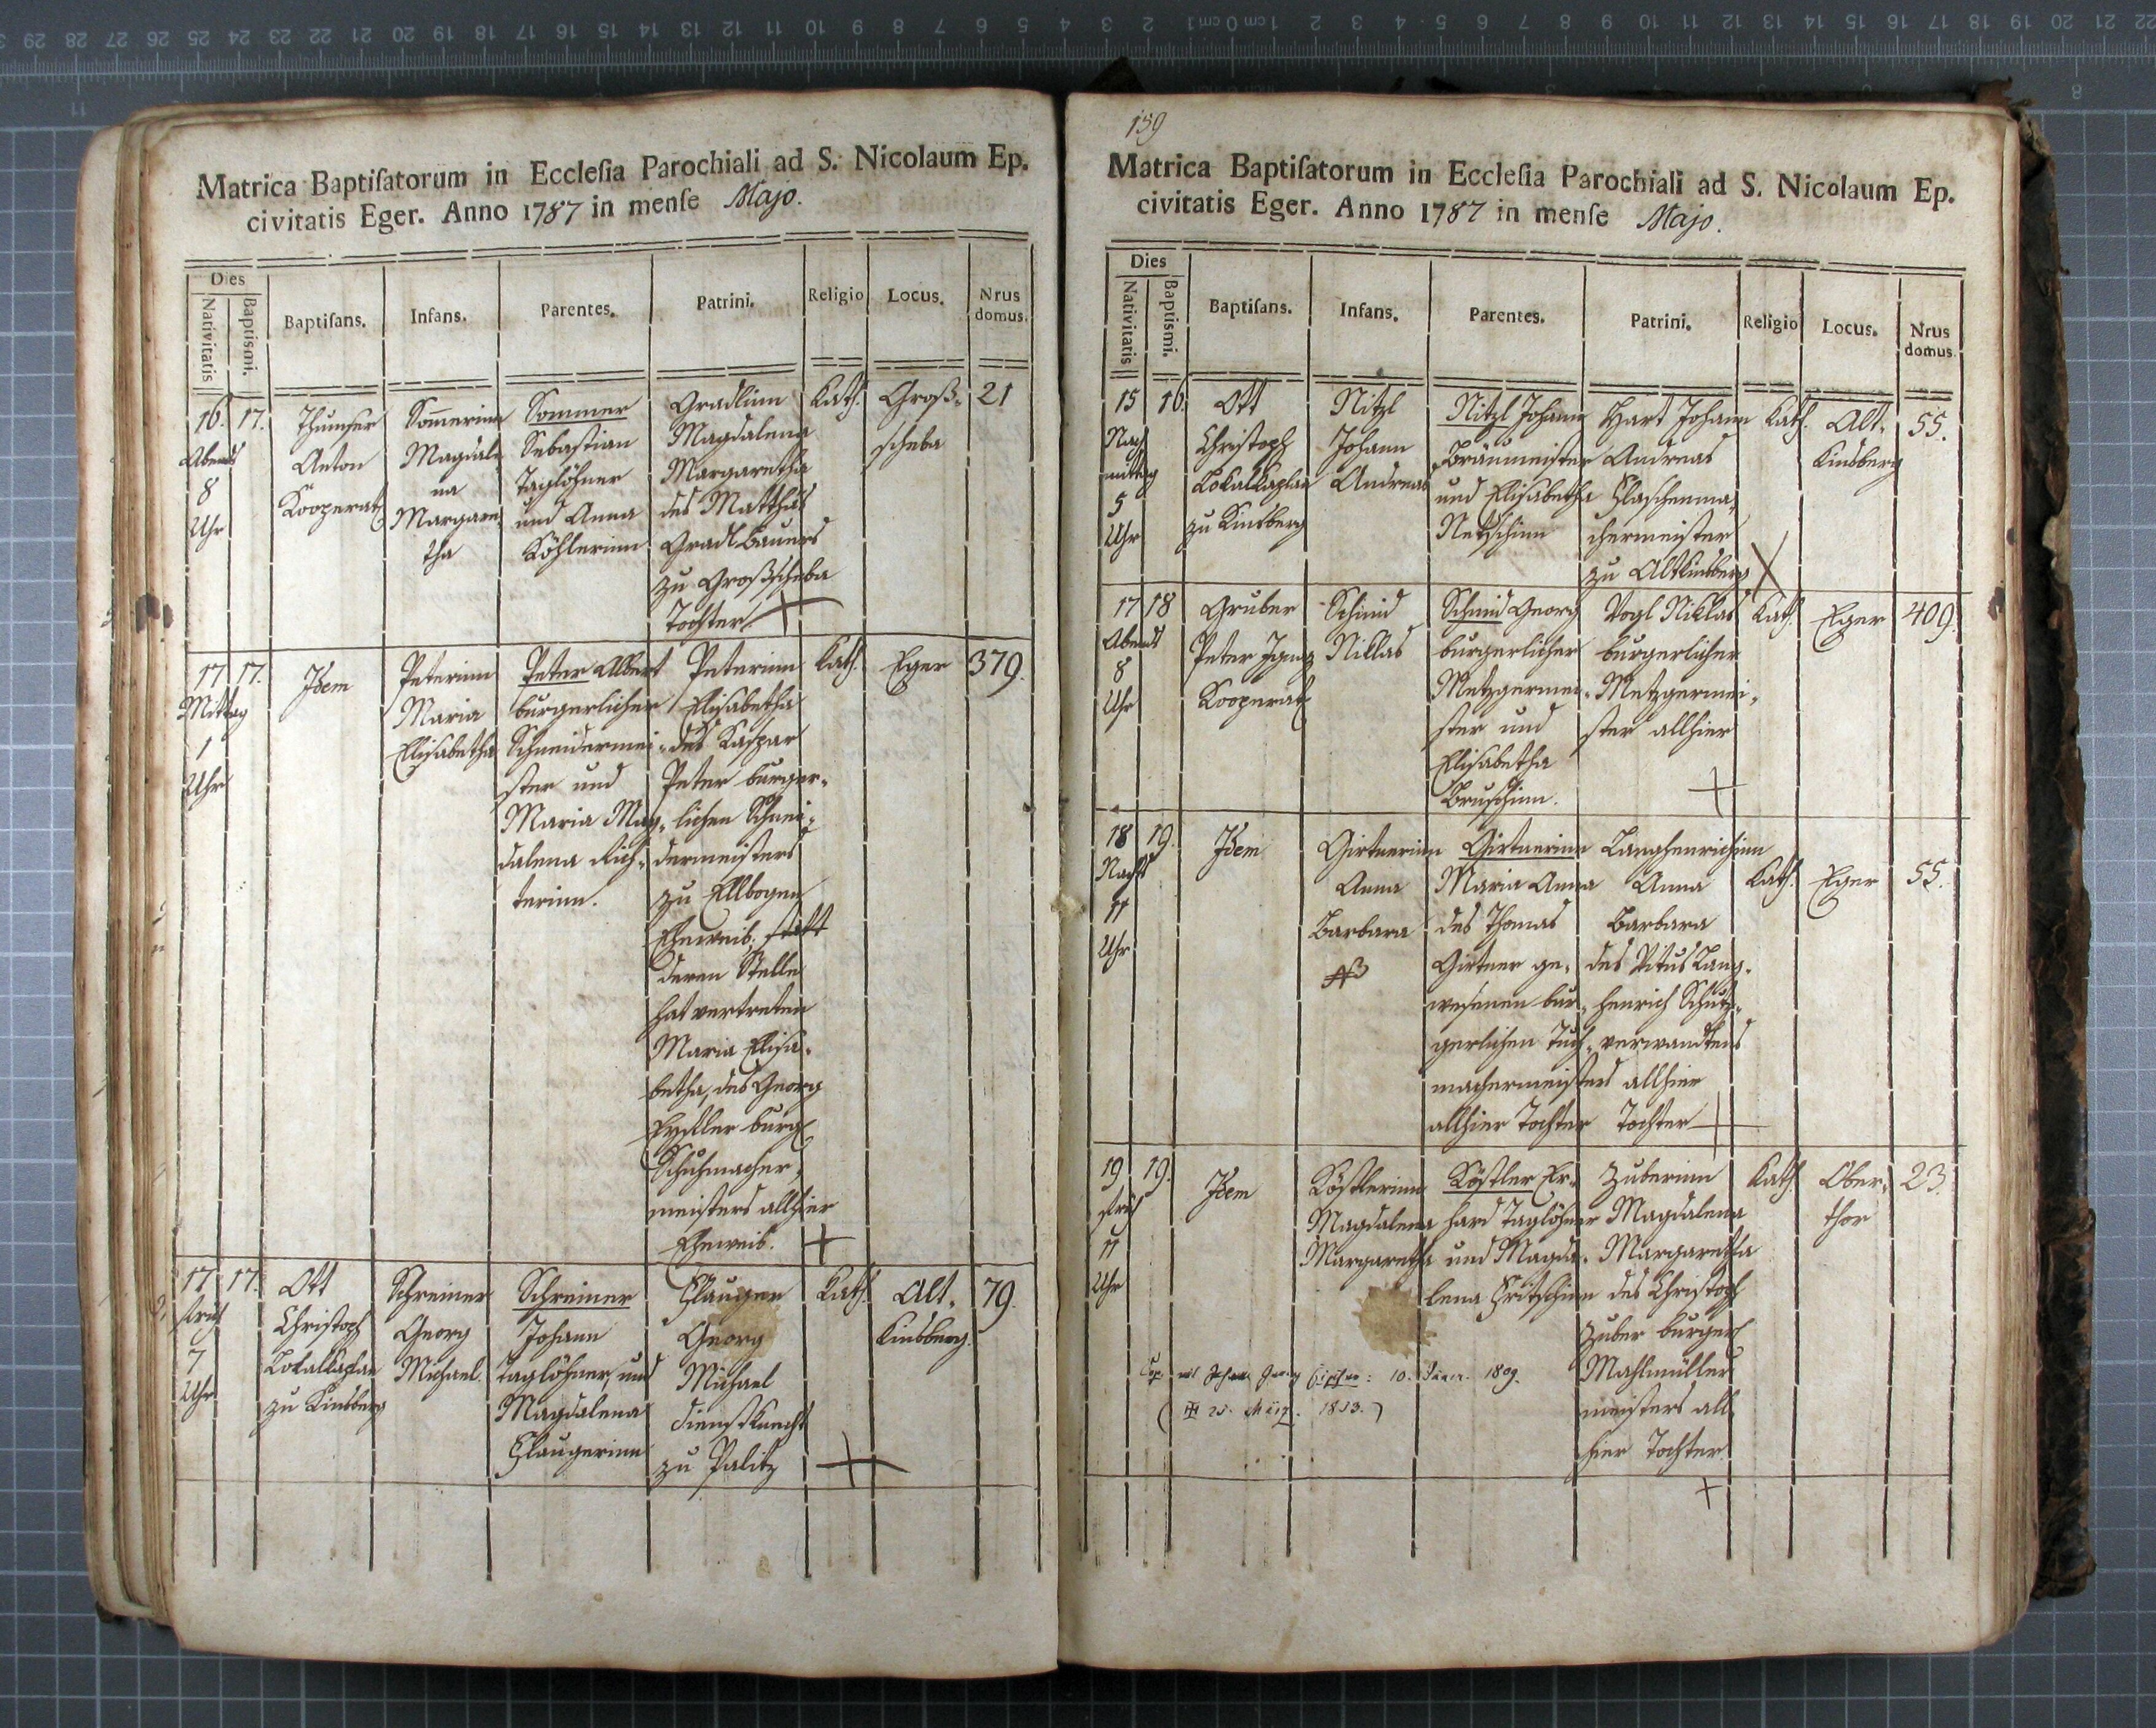 Matrica Baptiſatorum in Eccleſia Parochiali ad S. Nicolaum Ep.
civitatis Eger. Anno 1787 in menſe Majo.
Dies
Nativitatis
Baptiſmi.
Baptiſans.
Infans.
Parentes.
Patrini.
Religio
Locus.
Nrus
domus.
16.
Abends
8
Uhr
17.
Thumser
Anton
Kooperat
Som̄erinn
Magdale
na
Margare
tha
Sommer
Sebastian
Taglöhner
und Anna
Köhlerinn
Gradlinn
Magdalena
Margaretha
des Matthäs
Gradl Bauers
zu Großscheba
Tochter
Kath.
Groß-
scheba
21
17
Mittag
1
Uhr
17.
Idem
Peterinn
Maria
Elisabetha
Peter Albert
burgerlicher
Schneidermei-
ster und
Maria Mag-
dalena Rich-
terinn.
Peterinn
Elisabetha
des Kaspar
Peter burger-
lichen Schnei-
dermeisters
zu Ellbogen
Eheweib, statt
deren Stelle
hat vertreten
Maria Elisa-
betha, des Georg
burgl
Schuhmacher-
meisters allhier
Eheweib.
Kath.
Eger
379.
17
früh
7
Uhr
17.
Ott
Christoph
Lokalkaplan
zu Kinsberg
Schreiner
Georg
Michael
Schreiner
Johann
Taglöhner, und
Magdalena
Glaugerinn
Glauger
Georg
Michael
Dienstknecht
zu Palitz
Kath.
Alt-
Kinsberg.
79.
159
Matrica Baptiſatorum in Eccleſia Parochiali ad S. Nicolaum Ep.
civitatis Eger. Anno 1787 in menſe Majo.
Dies
Nativitatis
Baptiſmi.
Baptiſans.
Infans.
Parentes.
Patrini.
Religio
Locus.
Nrus
domus.
15
Nach
mittag
5
Uhr
16.
Ott
Christoph
Lokalkaplan
zu Kinsberg
Nitzl
Johann
Andreas
Nitzl Johann
Bräumeister
und Elisabetha
Netschinn
Hart Johann
Andreas
Flaschenma-
chermeister
zu Altkinsberg
Kath.
Alt-
Kinsberg
55.
17
Abends
8
Uhr
18
Gruber
Peter Ignaz
Kooperat
Schmid
Niklas
Schmid Georg
burgerlicher
Metzgermei-
ster und
Elisabetha
Bruschinn.
Vogl Niklas
burgerlicher
Metzgermei-
ster allhier
Kath.
Eger
409.
18
Nachts
11
Uhr
19.
Idem
Girtnerinn
Anna
Barbara
Girtnerinn
Maria Anna
des Thomas
Girtner ge-
wesenen bur-
gerlichen Tuch-
machermeisters
allhier Tochter
Langhenrichinn
Anna
Barbara
des Vitus Lang-
henrich Schutz-
verwandtens
allhier
Tochter
Kath.
Eger
55.
19
früh
11
Uhr
19.
Idem
Köstlerinn
Magdalena
Margaretha
Köstler Er-
hard Taglöhner
und Magda-
lena Fritschinn
Zuberinn
Magdalena
Margaretha
des Christoph
Zuber burgerl
Mahlmüller
meisters all
hier Tochter.
Kath.
Ober-
thor
23.
Cop. mit Johann Georg 10. 1809.
25. März. 1853.)